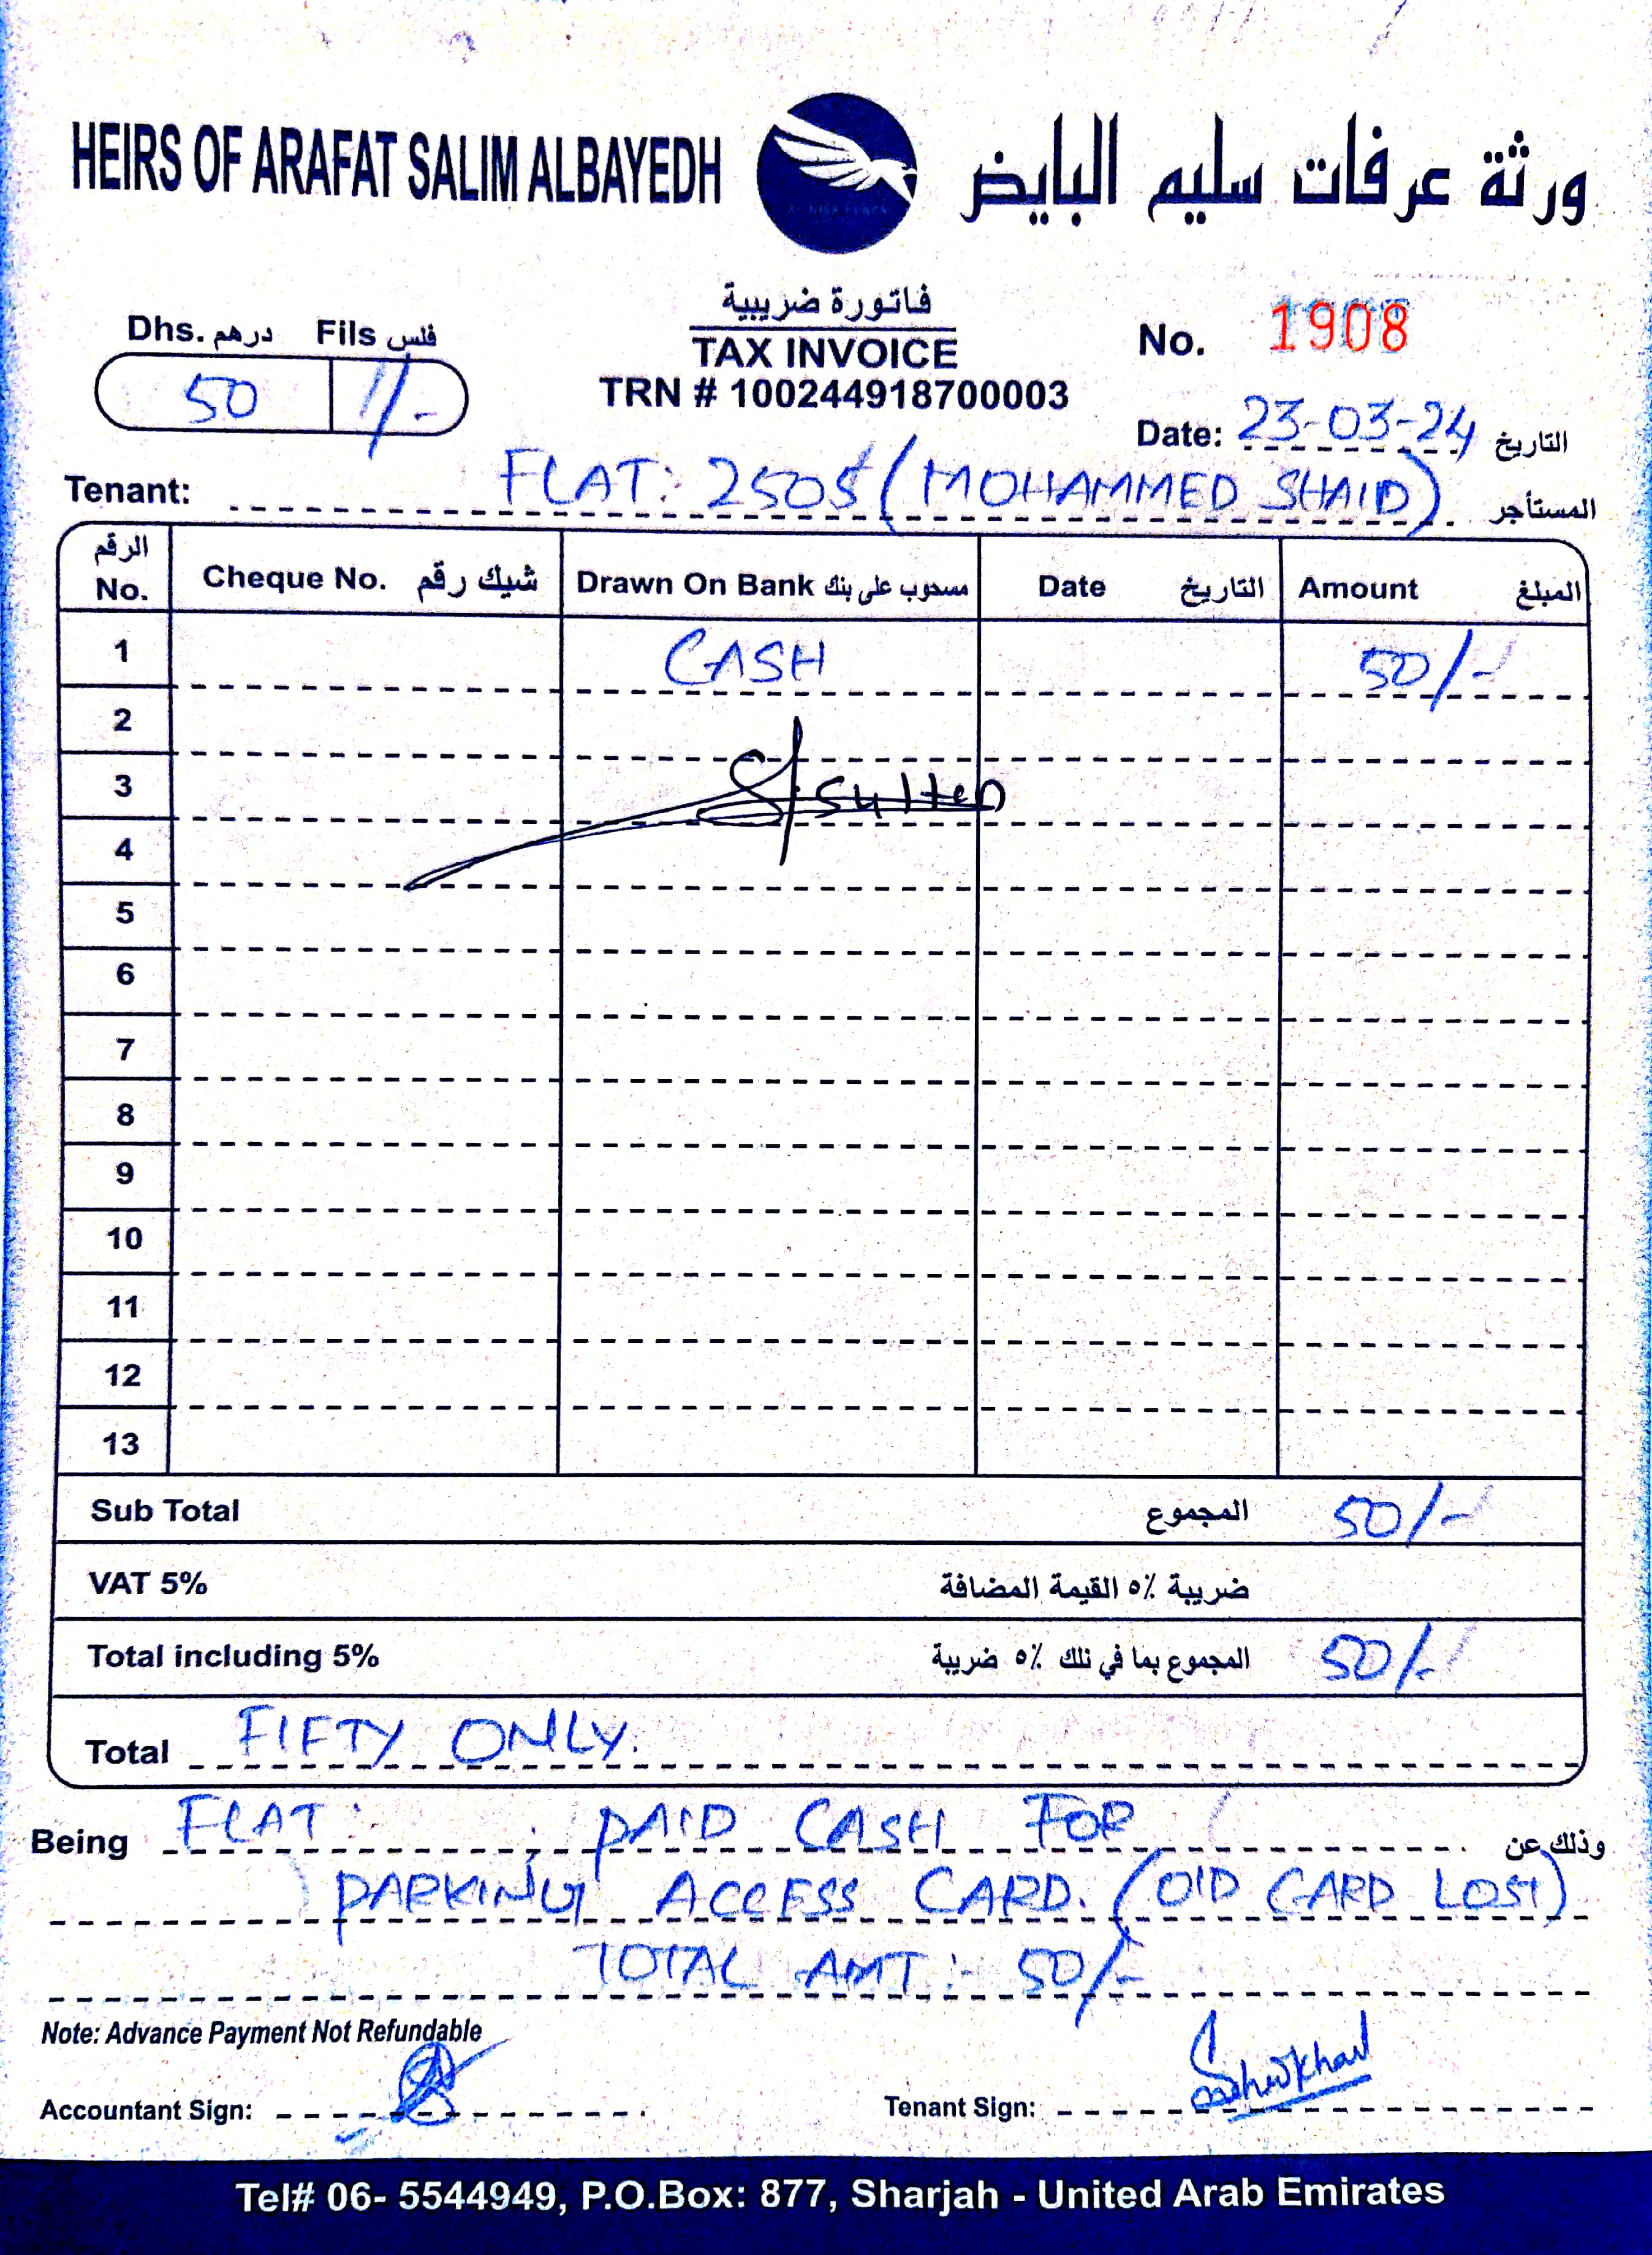 HEIRS OF ARAFAT SALIM ALBAYEDH ورثة عرفات سليم البايض
Dhs. درهم Fils فلس
50 /-
فاتورة ضريبية
TAX INVOICE
TRN # 100244918700003
No. 1908
Date: 23-03-24 التاريخ
Tenant: FLAT: 2505 (MOHAMMED SHAID) المستأجر
الرقم No. Cheque No. شيك رقم Drawn On Bank مسحوب على بنك Date التاريخ Amount المبلغ
1 CASH 50/-
2
3 Sulten
4
5
6
7
8
9
10
11
12
13
Sub Total المجموع 50/-
VAT 5% ضريبة ٥٪ القيمة المضافة
Total including 5% المجموع بما في ذلك ٥٪ ضريبة 50/-
Total FIFTY ONLY.
Being FLAT: : PAID CASH FOR وذلك عن
PARKING ACCESS CARD. (OLD CARD LOST)
TOTAL AMT:- 50/-
Note: Advance Payment Not Refundable
Accountant Sign: Tenant Sign:
Tel# 06- 5544949, P.O.Box: 877, Sharjah - United Arab Emirates